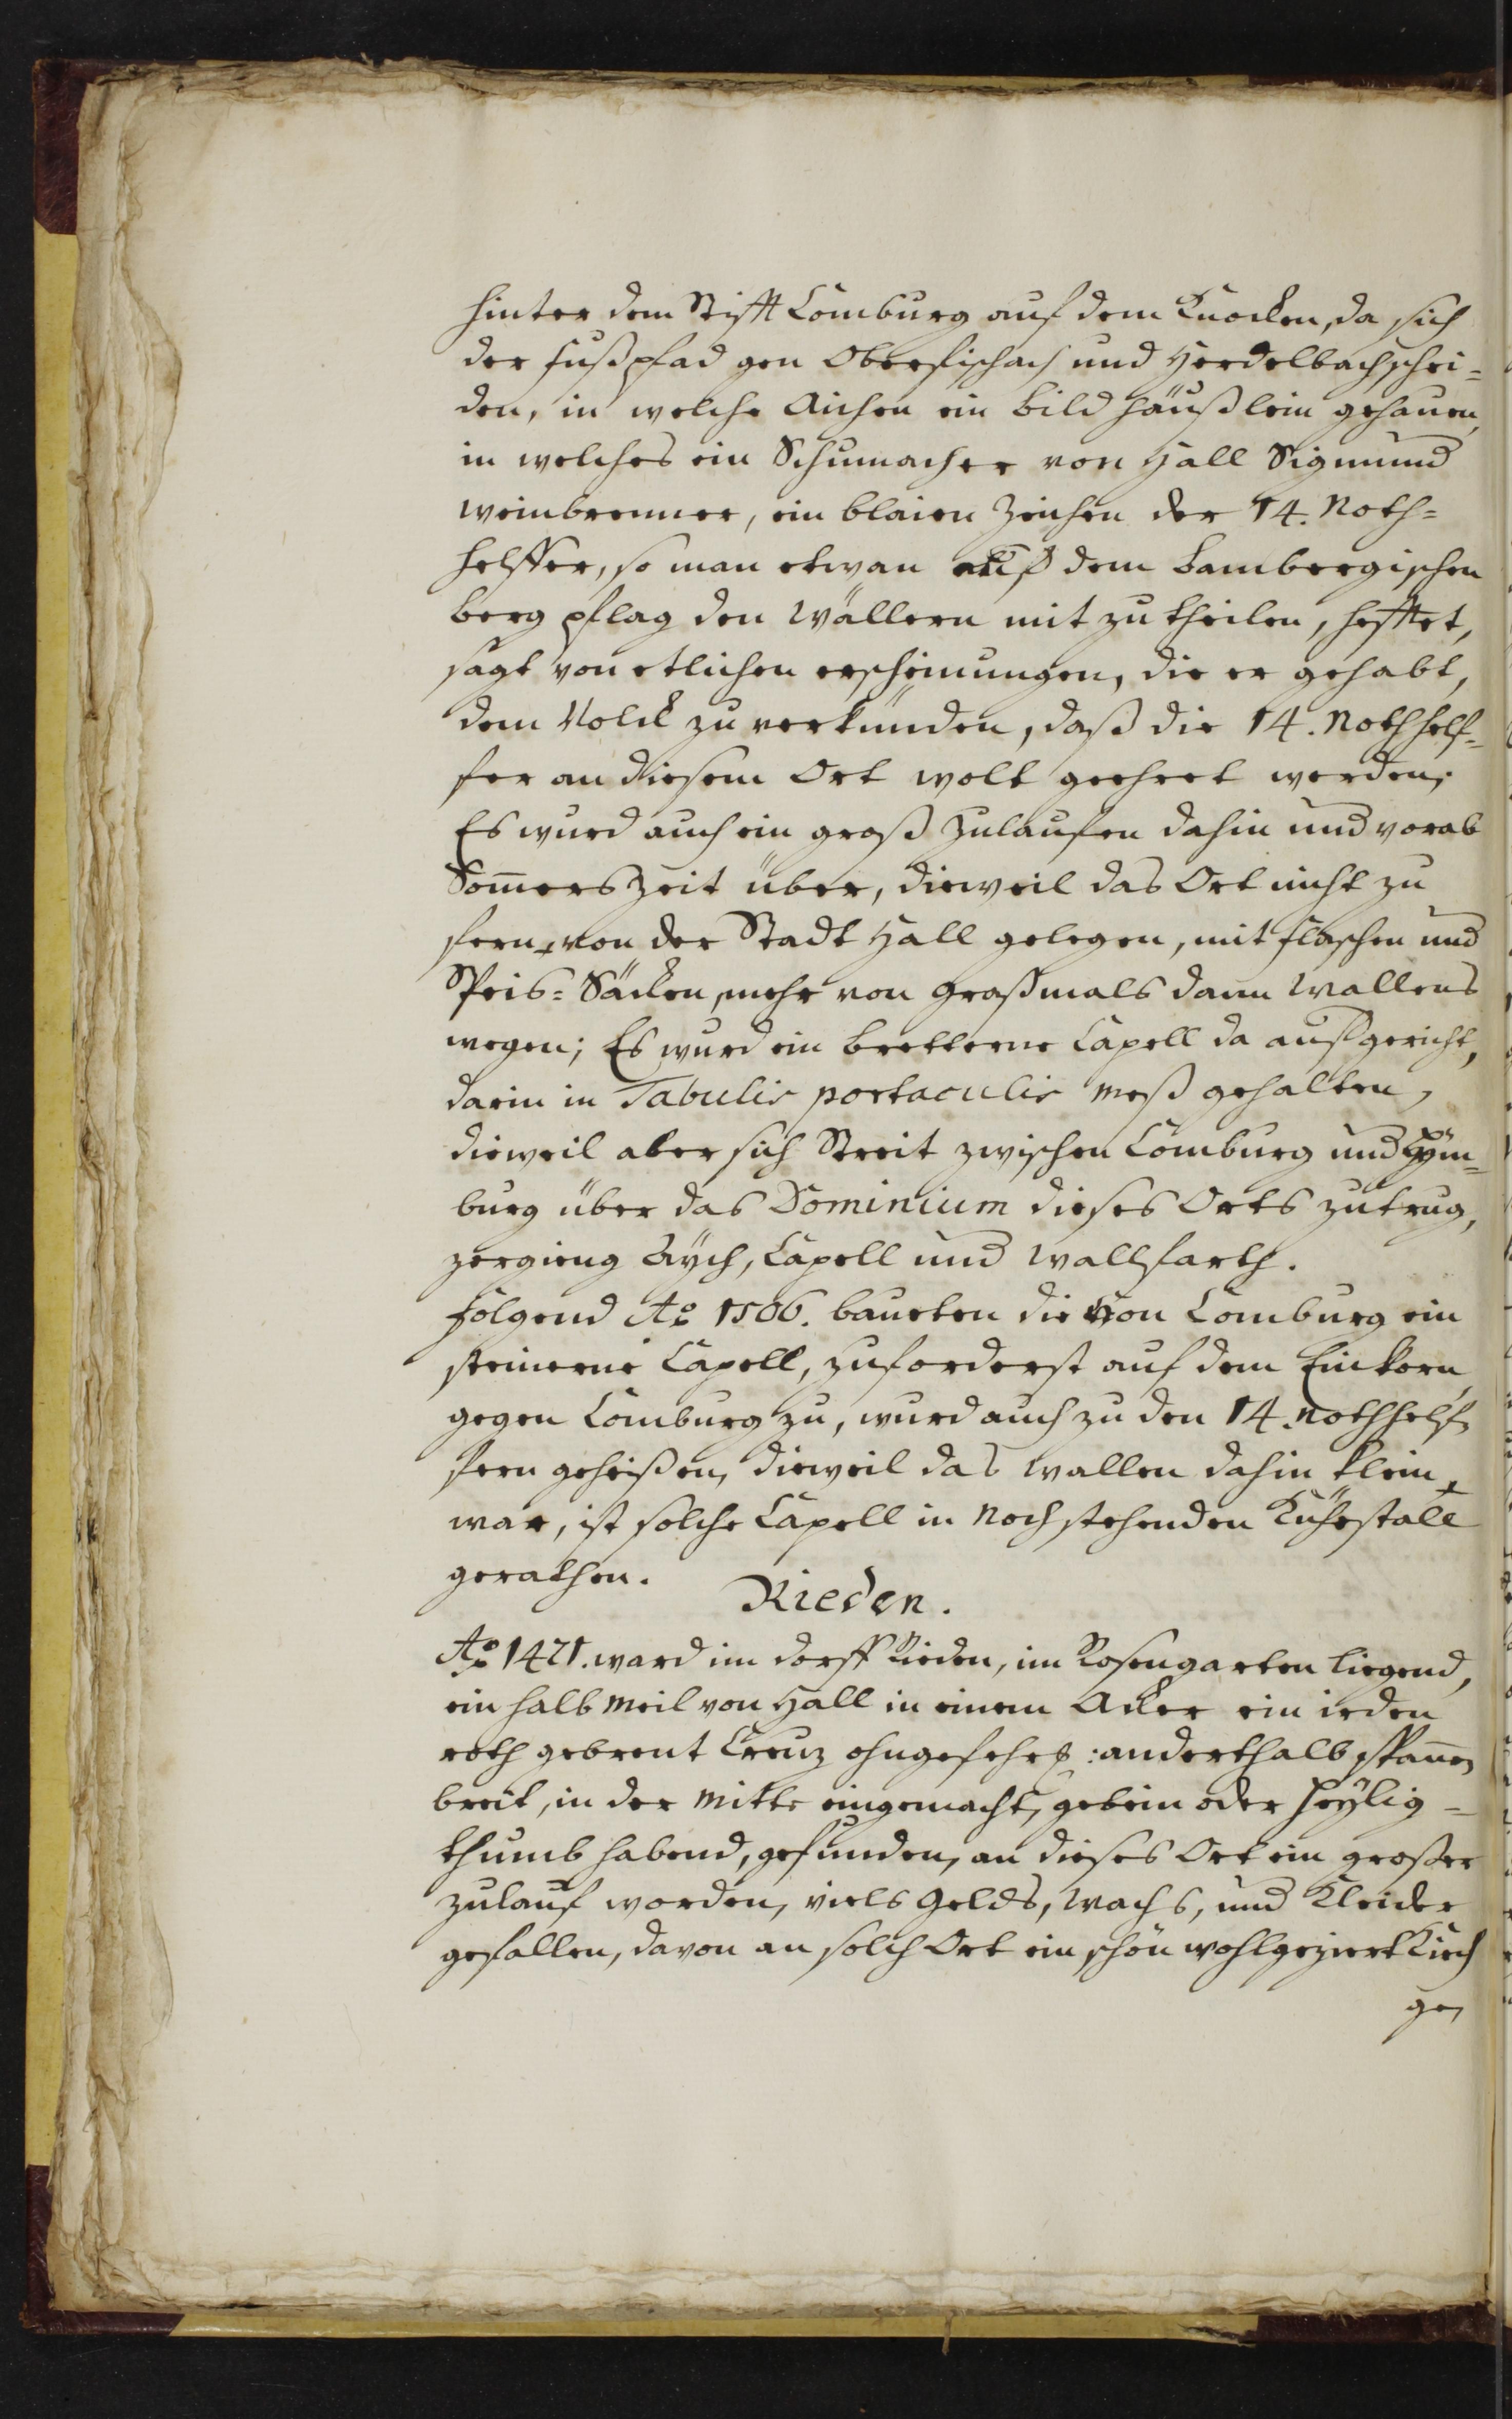 hinter dem Stifft Comburg auf dem Knocken, da sich
der fußpfad gen Oberfischach und Herdelbach schei=
den, in welche Aichen ein bild häußlein gehauen,
in welches ein Schumacher von Hall Sigmund
weinbrenner, ein blaien Zeichen der 14. Noth=
helffer, so man etwan auf dem bambergischen
berg pflag den Wallern mit zu theilen, hefftet,
sagt von etlichen erscheinungen, die er gehabt,
dem Volck zu verkünden, daß die 14. Nothhelf=
fer an diesem Ort wolt geehret werden;
Es wurd auch ein groß Zulaufen dahin und vorab
Som̄ers Zeit über, dieweil das Ort nicht zu
fern von der Stadt Hall gelegen, mit flaschen und
Speis= Säcken, mehr von graßmals dann Wallens
wegen; Es wurd ein bretterne Capell da aufgericht,
darin in Tabulis portaculis meß gehalten,
dieweil aber sich Streit zwischen Comburg und Lim=
burg über das Dominium dieses Orts zutrug,
zergieng Aych, Capell und Wallfarth.
folgend Ao 1506. baueten die von Comburg ein
steinerne Capell, zuforderst auf dem Einkorn,
gegen Comburg zu, wurd auch zu den 14. Nothhelf=
fern geheißen, dieweil das Wallen dahin klein
war, ist solche Capell in noch stehenden Kühestall
gerathen.
Rieden.
Ao 1421. ward im dorff Rieden, im Rosengarten liegend,
ein halb meil von Hall in einem Acker ein irden
roth gebrent Creuz ohngefehr anderthalb span̄en
breit, in der mitte eingemacht, gebein oder heylig=
thumb habend, gefunden, an dieses Ort ein großer
zulauf worden, viels Gelds, Wachs, und Kleider
gefallen, davon an solch Ort ein schön wohlgeziert Kirch
ge=